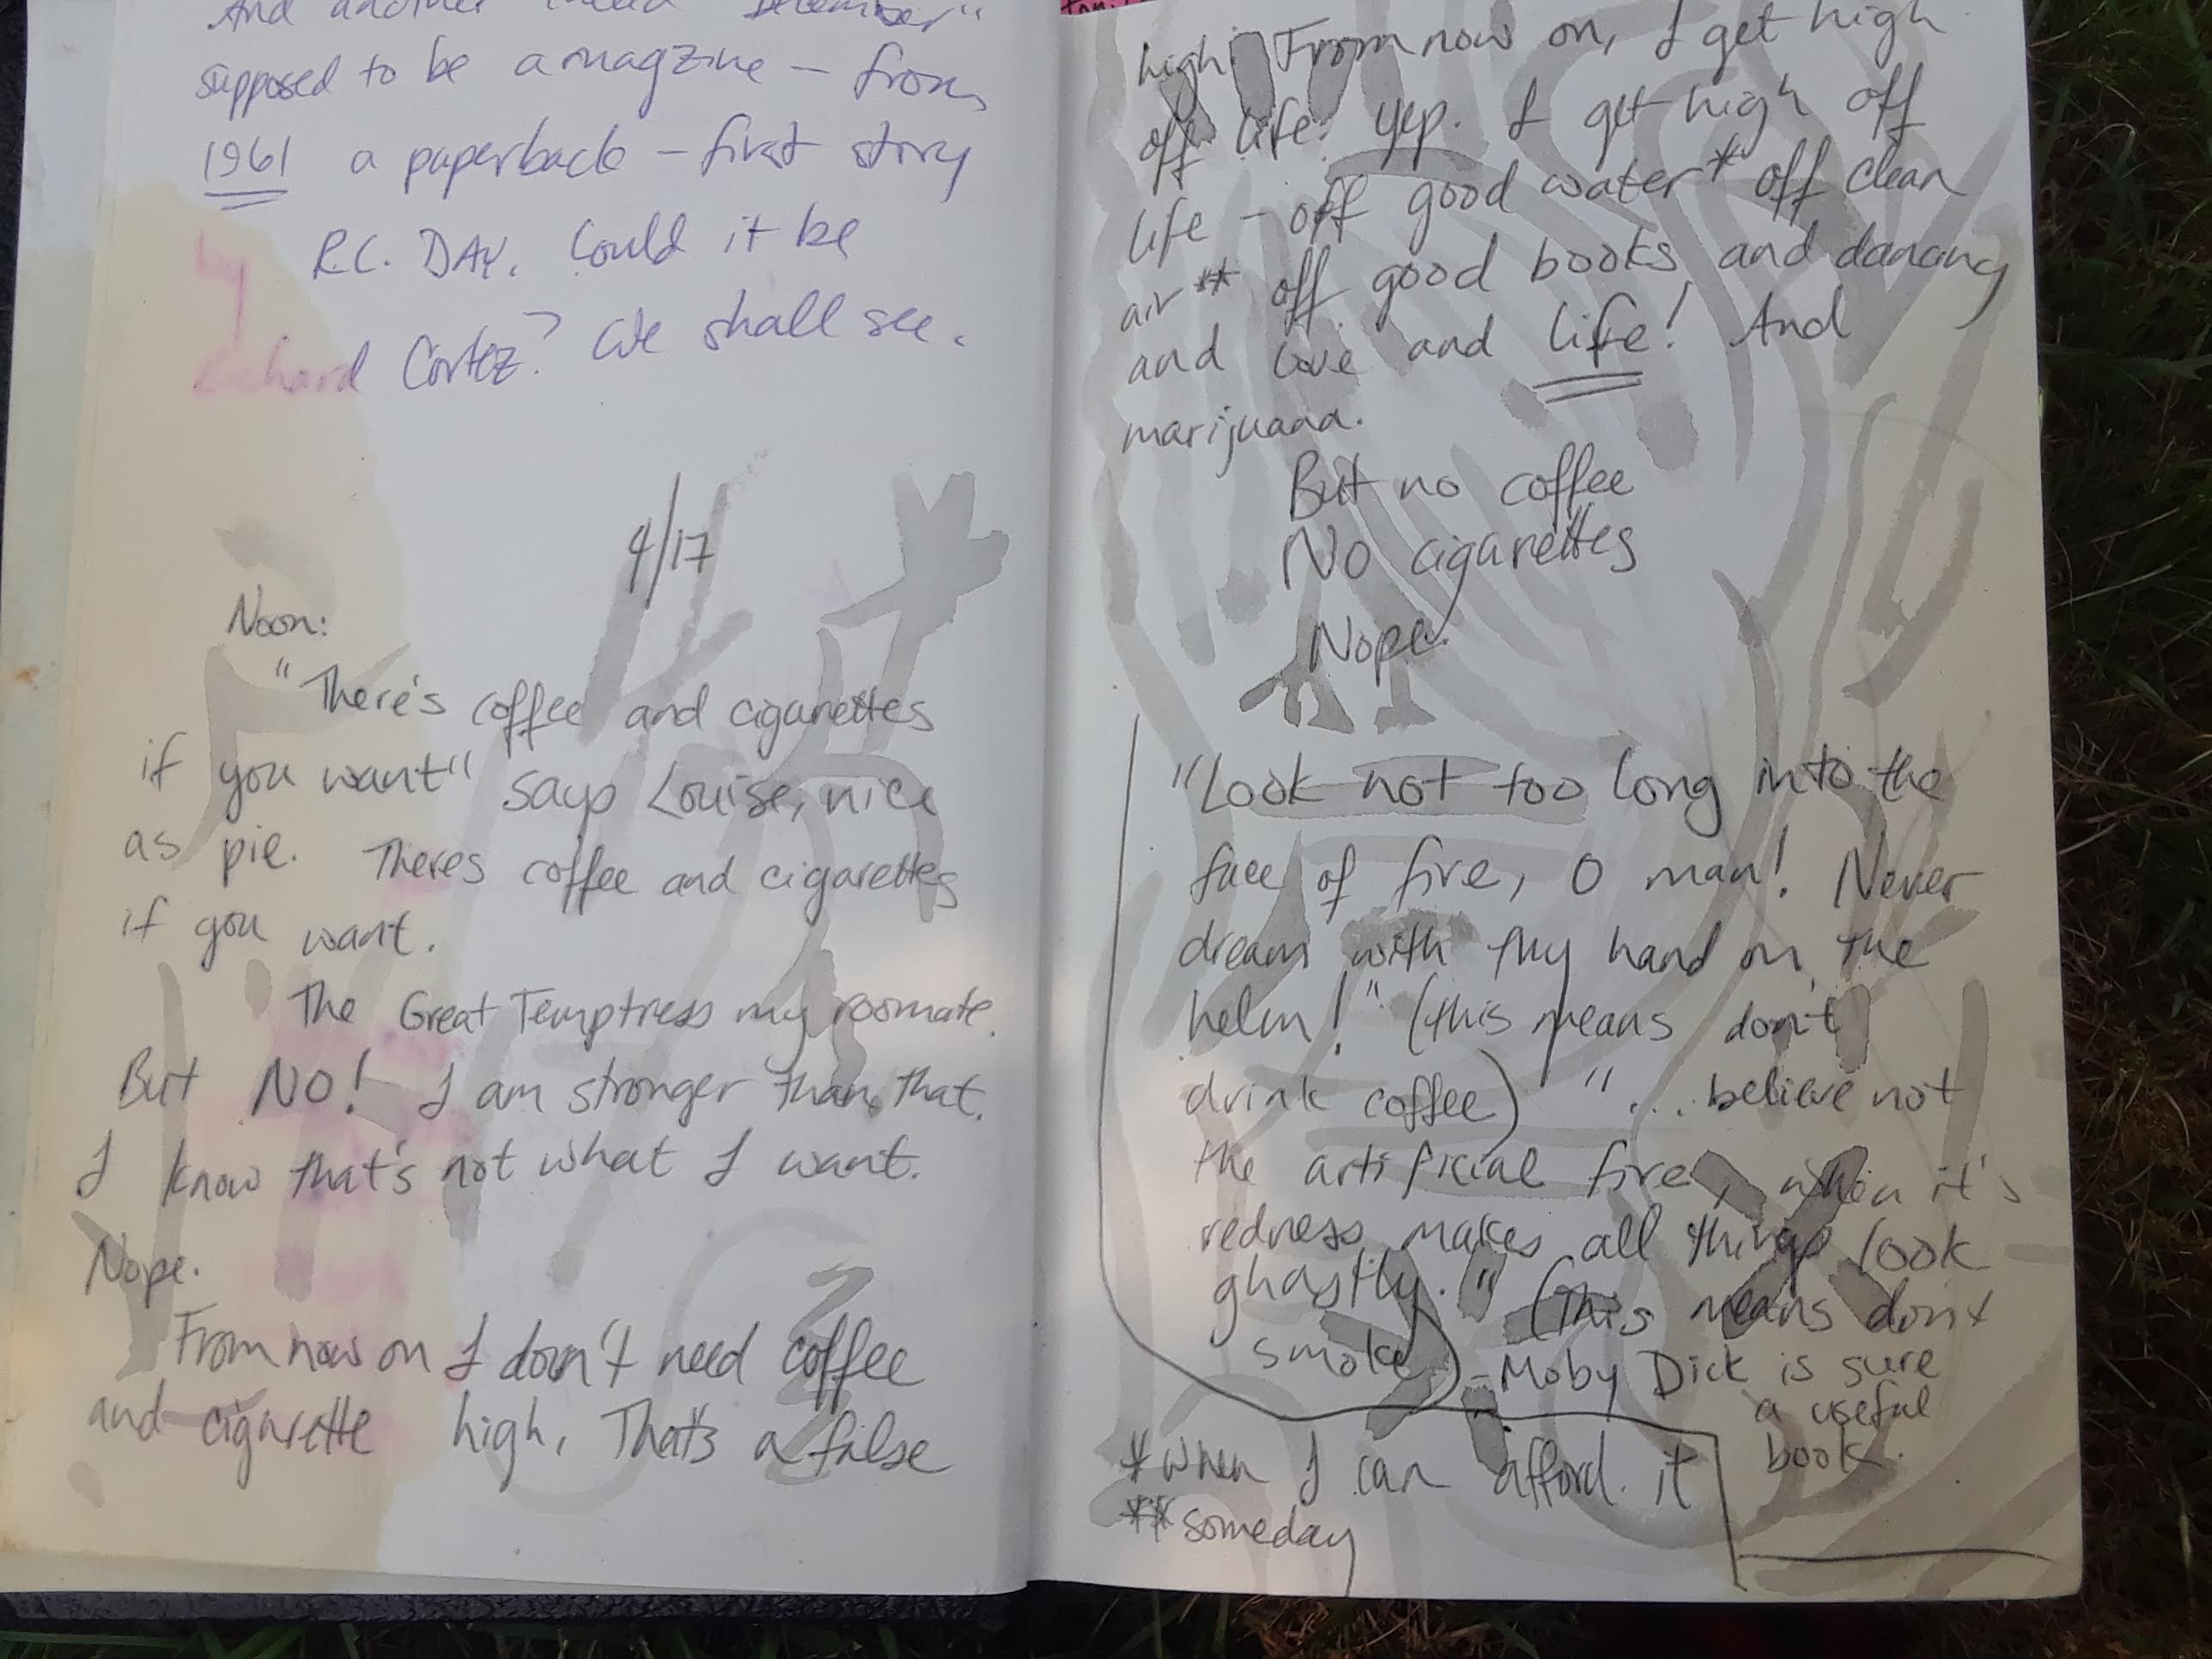 And another called "December"
supposed to be a magzine – from
1961 a paperback – first story
by R.C. DAY. Could it be
Richard Cortez? We shall see.
4/17
Noon:
"There's coffee and cigarettes
if you want" says Louise, nice
as pie. Theres coffee and cigarettes
if you want.
The Great Temptress my roomate.
But NO! I am stronger than that.
I know that's not what I want.
Nope.
From now on I don't need coffee
and cigarette high. That's a false
high. From now on, I get high
off life. Yep. I get high off
life – off good water* off clean
air** off good books and dancing
and love and life! And
marijuana.
But no coffee
No cigarettes
Nope.
"Look not too long into the
face of fire, O man! Never
dream with thy hand on the
helm!" (this means don't
drink coffee) "... believe not
the artificial fire, when it's
redness makes all things look
ghastly." (This means don't
smoke) – Moby Dick is sure
a useful
book.
*when I can afford it
**someday